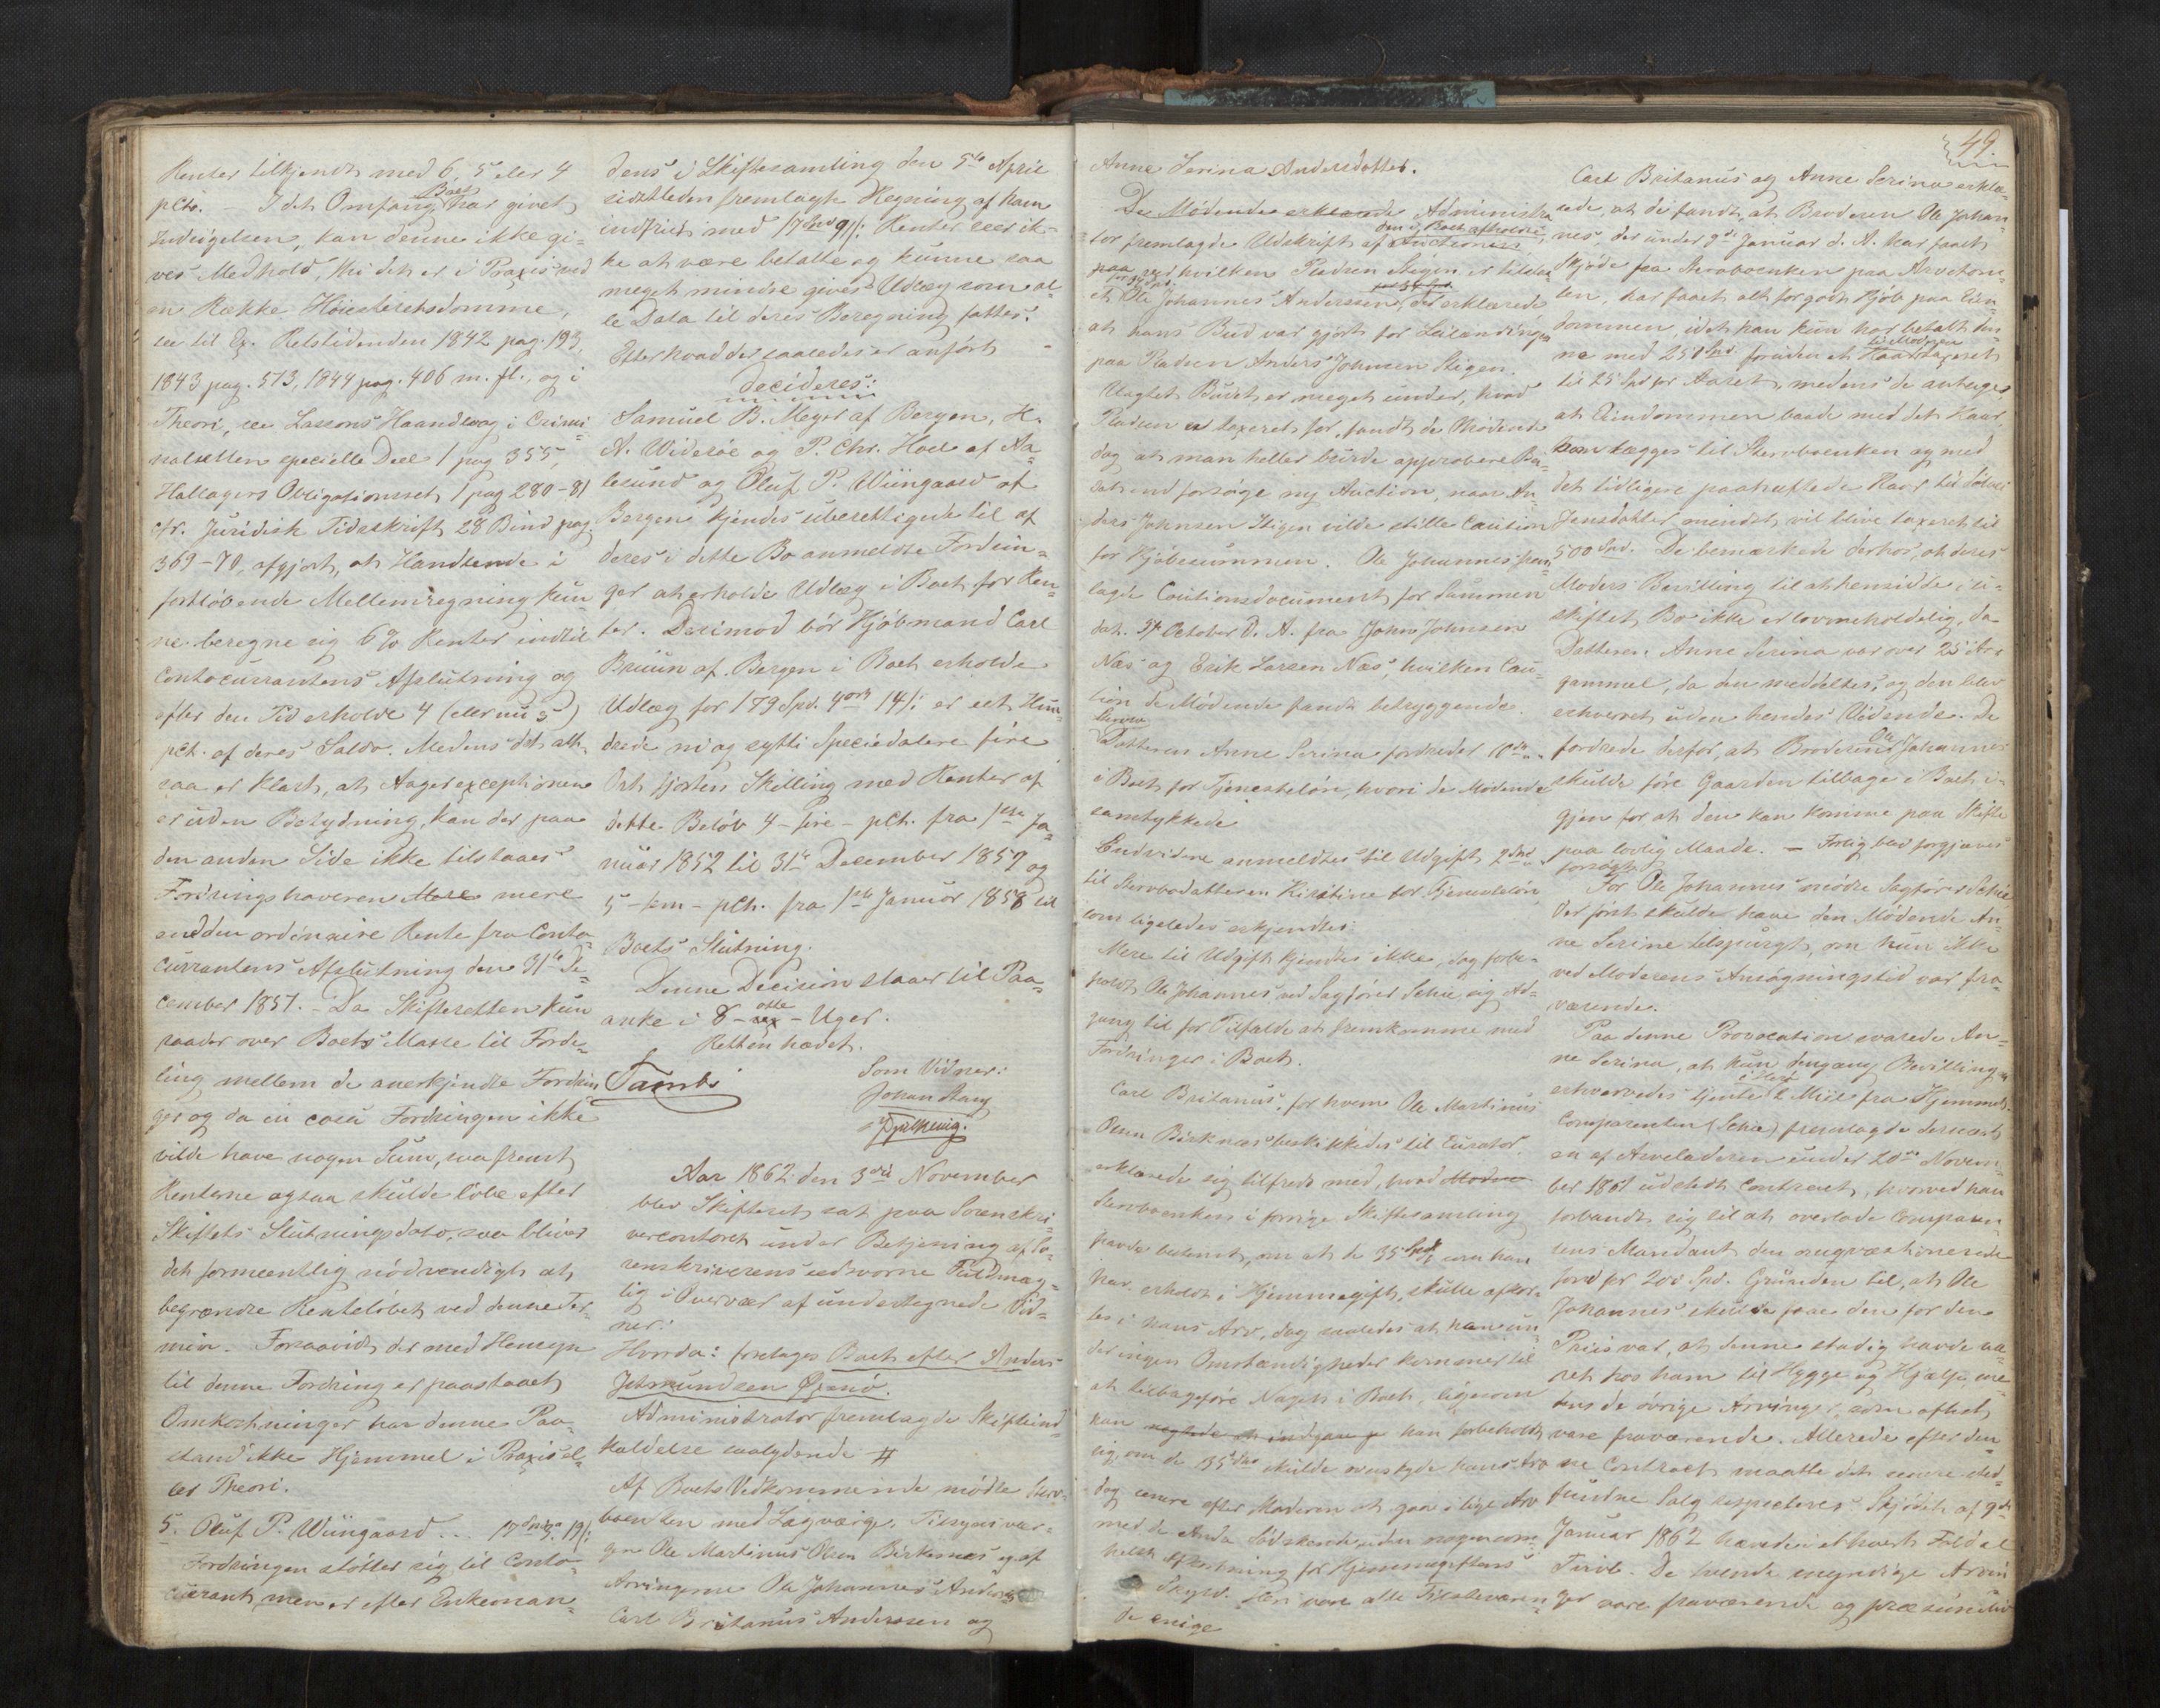 Renter tilkjendt med 6, 5 eler 4
pCto. – I det Omfang Boet har givet
Indsigelsen, kan denne ikke gi-
ves Medhold, thi det er i Praxis ved
en Række Høiesteretsdomme,
see til Ex. Retstidenden 1842 pag. 193,
1843 pag. 513, 1844 pag. 406 m. fl., og i
Theori, see Lassons Haandbog i Crimi-
nalretten specielle Deel 1 pag 355,
Hallagers Obligationsret, 1 pag 280-81
cfr. Juridisk Tidsskrift 28 Bind pag
369-70, afgjort, at Handlende i
fortløbende Mellemregning kun-
ne beregne sig 6 % Renter indtil
Contocurrantens Afslutning og
efter den Tid erholde 4 (eler nu 5)
pCt. af deres Saldo. Medens det alt-
saa er klart, at Aagerexceptionen
er uden Betydning, kan der paa
den anden Side ikke tilstaaes
Fordringshaveren mere
end den ordinaire Rente fra Conto-
currantens Afslutning den 31te De-
cember 1857. – Da Skifteretten kun
raader over Boets Masse til Forde-
ling mellem de anerkjendte Fordrin-
ger og da in casu Fordringen ikke
vilde have nogen Sum, saafremt
Renterne ogsaa skulde løbe efter
Skiftets Slutningsdato, saa bliver
det formeentlig nødvendigt at
begrændse Renteløbet ved denne Ter-
min. Forsaavidt der med Hensyn
til denne Fordring er paastaaet
Omkostninger har denne Paa-
stand ikke Hjemmel i Praxis el-
ler Theori.
5. Oluf P. Wiingaard ... 17 Spd 3 ort 19 s:
Fordringen støtter sig til Conto-
courant, men er efter Enkeman-
dens i Skiftesamling den 5te April
sidstleden fremlagte Regning af ham
indfriet med 17 Spd 9 s: Renter sees ik-
ke at være betalte og kunne saa
meget mindre gives Udlæg som al-
le Data til deres Beregning fattes.
Efter hvad der saaledes er anført
decideres:
Samuel B. Meyer af Bergen, H.
A. Widerøe og P. Chr. Hoel af Aa-
lesund og Oluf P. Wiingaard af
Bergen kjendes uberettigede til af
deres i dette Bo anmeldte Fordrin-
ger at erholde Udlæg i Boet for Ren-
ter. Derimod bør Kjøbmand Carl
Bruun af Bergen i Boet erholde
Udlæg for 179 Spd. 4 ort 14 s: er eet Hun-
drede ni og sytti Speciedalere fire
Ort fjorten Skilling med Renter af
dette Beløb 4 – fire – pCt. fra 1ste Ja-
nuar 1852 til 31te December 1857 og
5 – fem – pCt. fra 1ste Januar 1858 til
Boets Slutning.
Denne Decision staaer til Paa-
anke i 8 – otte – Uger.
Retten hævet.
Tambs
Som Vidner:
Johan Aang
Aar 1862 den 3die November
blev Skifteret sat paa Sorenskri-
vercontoret under Betjening af So-
renskriverens edsvorne Fuldmæg-
tig i Overvær af undertegnede Vid-
ner:
Hvorda: foretages Boet efter Anders
Jetmundsen
Administrator fremlagde Skifteind-
kaldelse saalydende #
Af Boets Vedkommende mødte Sterv-
boenken med Lagværge, Tilsynsvær-
ge Ole Martinus Olsen Birknes og af
Arvingerne Ole Johannes Andersen
Carl Britanus Anderssen og
49.
Anne Serina Andersdatter.
De Mødende erklærede Administra-
tor fremlagde Udskrift af den i Boet afholdte Auction
paa ved hvilken Pladsen Stigen er tilslaa-
et Ole Johannes Anderssen, der erklærede
at hans Bud var gjort for Leilændingen
paa Pladsen Anders Johnsen Stigen.
Uagtet Budet er meget under, hvad
Pladsen er taxeret for, fandt de Mødende
dog at man heller burde approbere Bu-
det end forsøge ny Auction, naar An-
ders Johnsen Stigen vilde stille Caution
for Kjøbesummen. Ole Johannes frem-
lagde Cautionsdocument for Summen
dat. October d. A. fra John Johnsen
Næs og Erik Larsen Næs, hvilken Cau-
tion de Mødende fandt betryggende.
Datteren Anne Serina fordrede 10 Spd
i Boet for Tjenesteløn, hvori de Mødende
samtykkede
Endvidere anmeldtes til Udgift 2 Spd
til Stervbodatteren Kirstine for Tjenesteløn
som ligeledes erkjendtes.
Mere til Udgift kjendtes ikke, dog forbe-
holdt Ole Johannes ved Sagfører Schie sig Ad-
gang til for Tilfælde at fremkomme med
Fordringer i Boet.
Carl Britanus, for hvem Ole Martinus
Olsen Birknes beskikkedes til Curator
erklærede sig tilfreds med, hvad
Stervboenken i forrige Skiftesamling
havde bestemt, om at de 35 Spd, som han
har erholdt i Hjemmegift, skulle afkor-
tes i hans Arv, dog saaledes at han un-
der ingen Omstændigheder kommer til
at tilbageføre Noget i Boet, ligesom
han han forbeholdt
sig, om de 35 Spd skulde overstige hans Arv
dog senere efter Moderen at gaa i lige Arv
med de Andre Sødskende uden nogensom-
helst Afkortning for Hjemmegiftens
Skyld. Heri vare alle Tilstedeværen-
de enige
Carl Britanus og Anne Serina erklæ-
rede, at de fandt, at Broderen Ole Johan-
nes, der under 9de Januar d. A. har faaet
Skjøde fra Stervboenken paa Arvetom-
ten, har faaet alt for godt Kjøb paa Eien-
dommen, idet han kun har betalt den-
ne med 250 Spd foruden et Kaar til Moderen taxeret
til 25 Spd pr Aaret, medens de antage
at Eiendommen baade med det Kaar,
som lægges til Stervboenken og med
det tidligere paahæftede Kaar til
Jensdatter mindst vil blive taxeret til
500 Spd. De bemærkede derhos, at deres
Moders Bevilling til at hensidde i u-
skiftet Bo ikke er lovmeholdelig, da
Datteren Anne Serina var over 25 Aar
gammel, da den meddeltes, og den blev
erhvervet uden hendes Vidende. De
fordrede derfor, at Broderen Ole Johannes
skulde føre Gaarden tilbage i Boet i-
gjen for at den kan komme paa Skifte
paa lovlig Maade. – Forlig blev forgjæves
forsøgt
For Ole Johannes mødte Sagfører Schie
der først skulde have den Mødende An-
ne Serine tilspurgt, om hun ikke
ved Moderens Ansøgningstid var fra-
værende.
Paa denne Provocation svarede An-
ne Serina, at hun dengang Bevillingen
erhvervedes tjente 2 Miil fra Hjemmet.
Comparenten (Schie) fremlagde dernæst
en af Arveladeren under 20de Novem-
ber 1861 udstedt Contract, hvorved han
forbandt sig til at overlade Comparen-
tens Mandant den omqvæstionerede
Jord for 200 Spd. Grunden til, at Ole
Johannes skulde faae den for den
Priis var, at denne stadig havde væ-
ret hos ham til Hygge og Hjælp, me-
dens de øvrige Arvinger, som oftest
vare fraværende. Allerede efter den-
ne Contract maatte det senere sted-
fundne Salg respecteres. Skjødet af 9de
Januar 1862 hævede i ethvert Fald al
Tvivl. De tvende myndige Arvin-
ger vare fraværende og præsumtiv